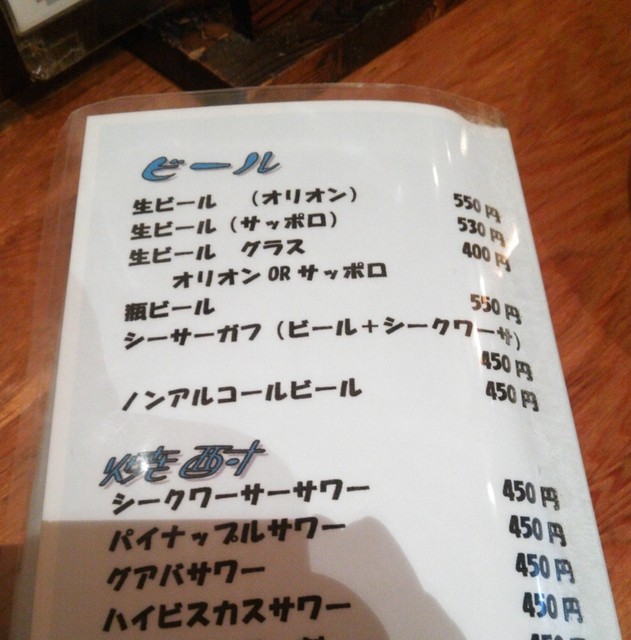 ビール
生ビール （オリオン） 550円
生ビール（サッポロ） 530円
生ビール グラス 400円
オリオン OR サッポロ
瓶ビール 550円
シーサーガフ（ビール＋シークワーサ）
450円
ノンアルコールビール 450円
焼酎
シークワーサーサワー 450円
パイナップルサワー 450円
グアバサワー 450円
ハイビスカスサワー 450円